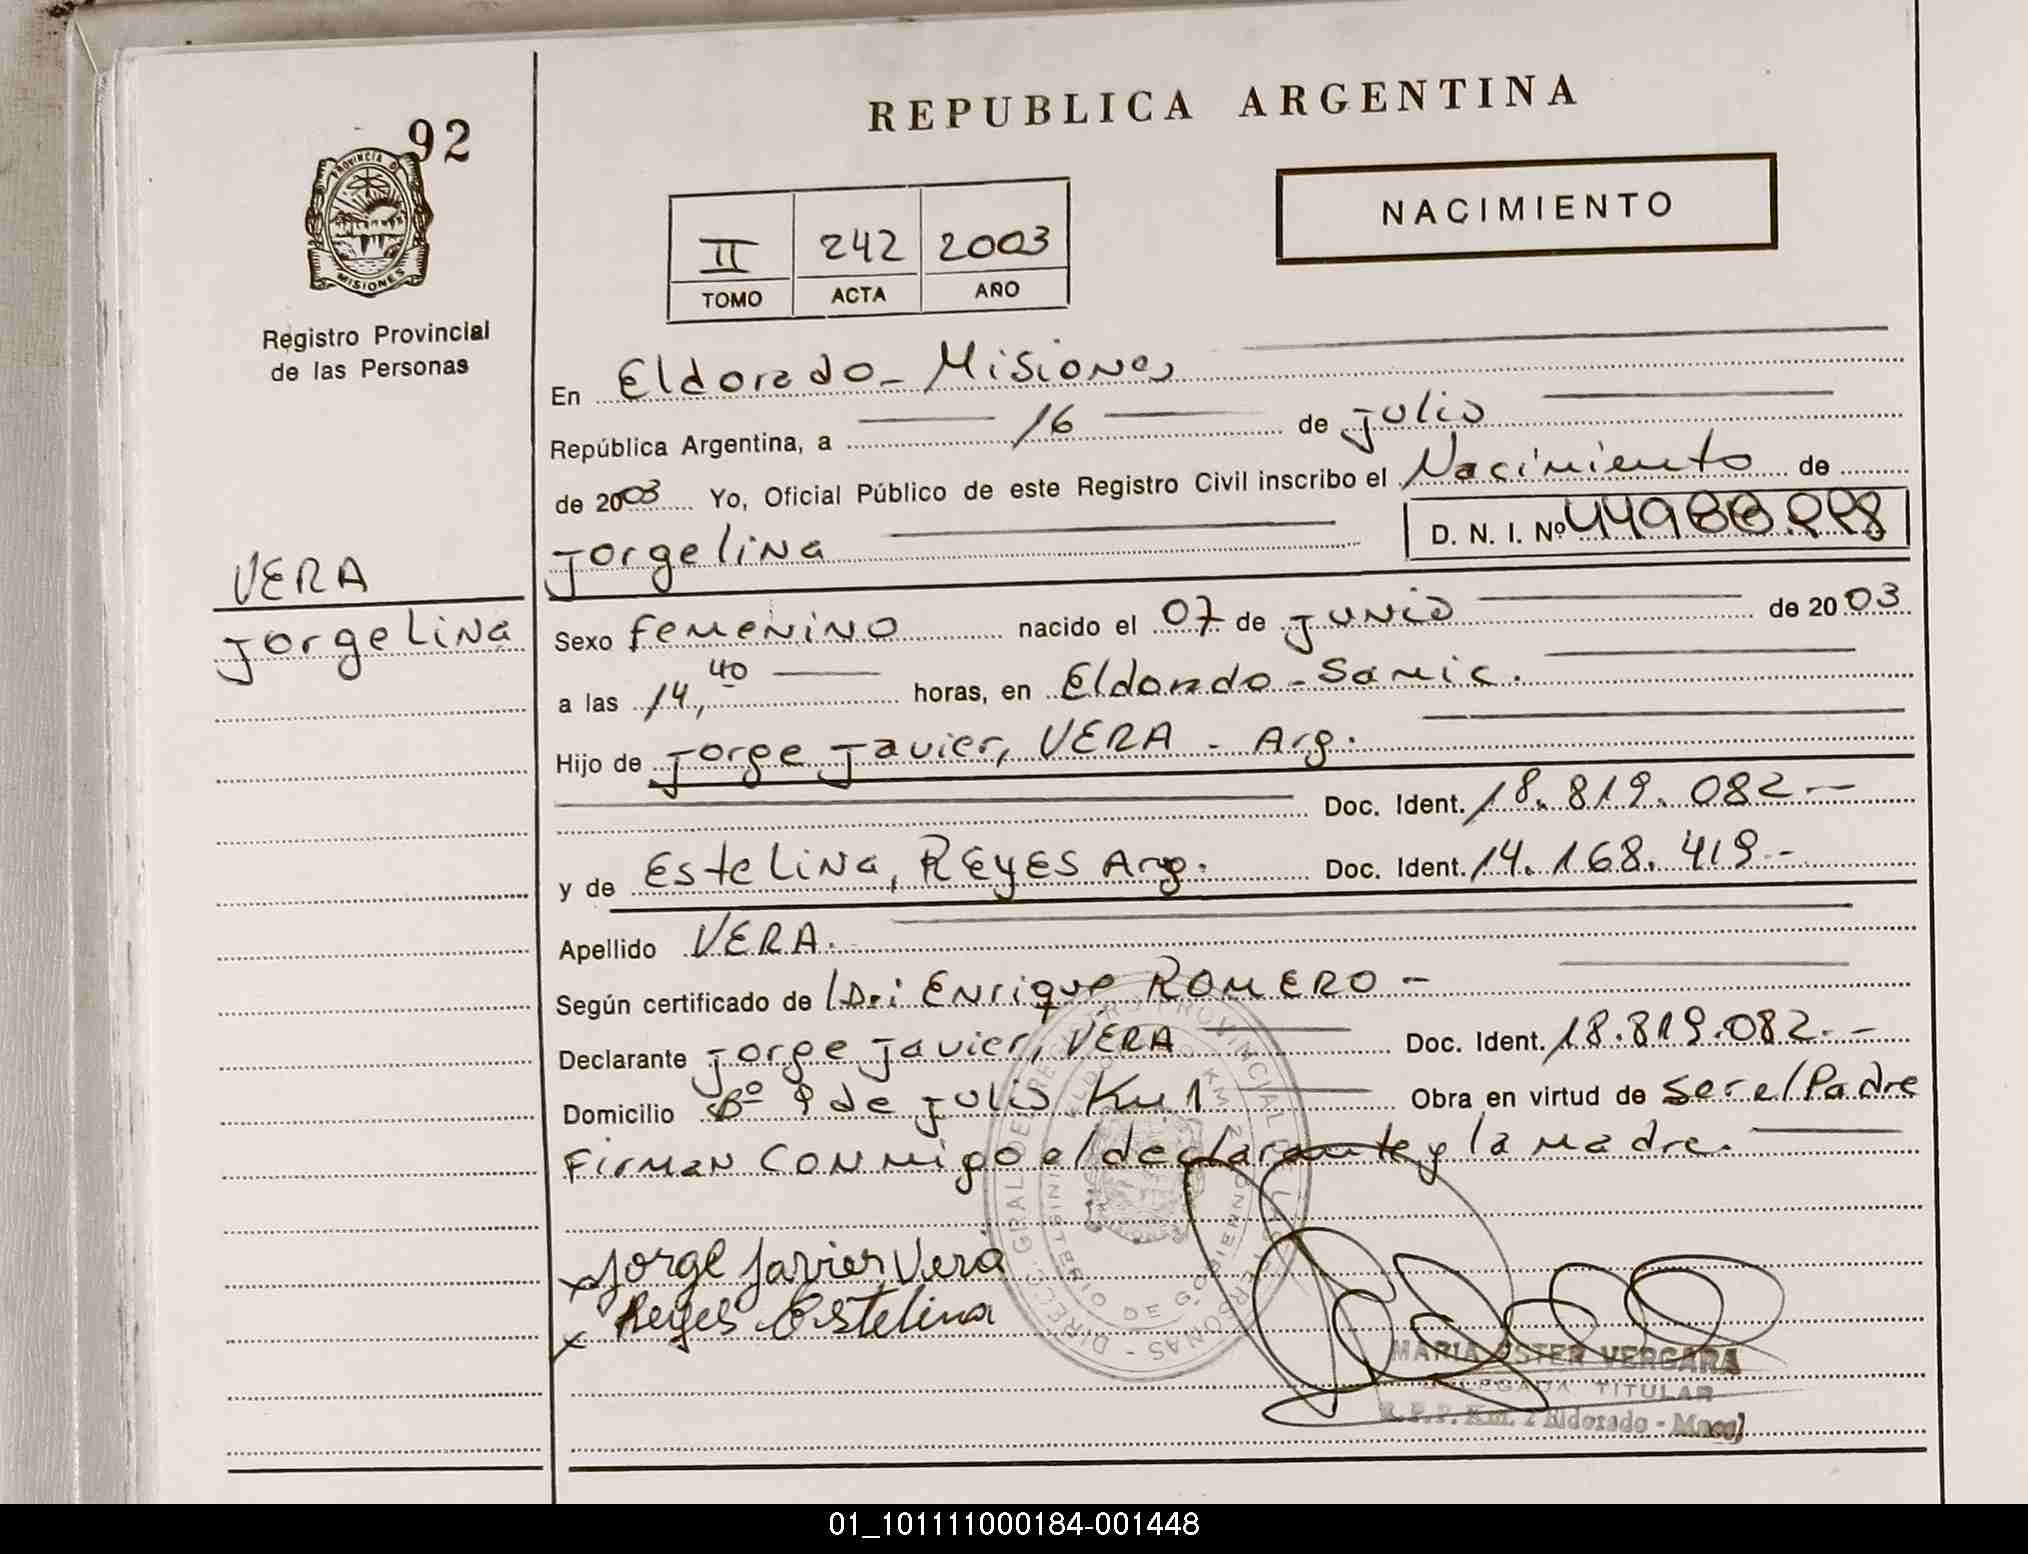 92
PROVINCIA DE
MISIONES
Registro Provincial
de las Personas
VERA
Jorgelina
REPUBLICA ARGENTINA
NACIMIENTO
II 242 2003
TOMO ACTA AÑO
En Eldorado - Misiones
República Argentina, a 16 de Julio
de 2003 Yo, Oficial Público de este Registro Civil inscribo el Nacimiento de
Jorgelina D. N. I. Nº
Sexo Femenino nacido el 07 de Junio de 2003
a las 14,40 horas, en Eldorado - Samic.
Hijo de Jorge Javier, VERA - Arg.
Doc. Ident. 18.819.082.-
y de Estelina, REYES Arg. Doc. Ident. 14.168.419.-
Apellido VERA.
Según certificado de Enrique ROMERO -
Declarante Jorge Javier, VERA Doc. Ident. 18.819.082.-
Domicilio Bº 9 de Julio Km 1 Obra en virtud de Ser el Padre
Firman conmigo el declarante y la madre.
x Jorge Javier Vera
x Reyes Estelina
MARIA ESTER VERGARA
DELEGADA TITULAR
R.P.P. Km. 2 Eldorado - Mnes.
01_101111000184-001448